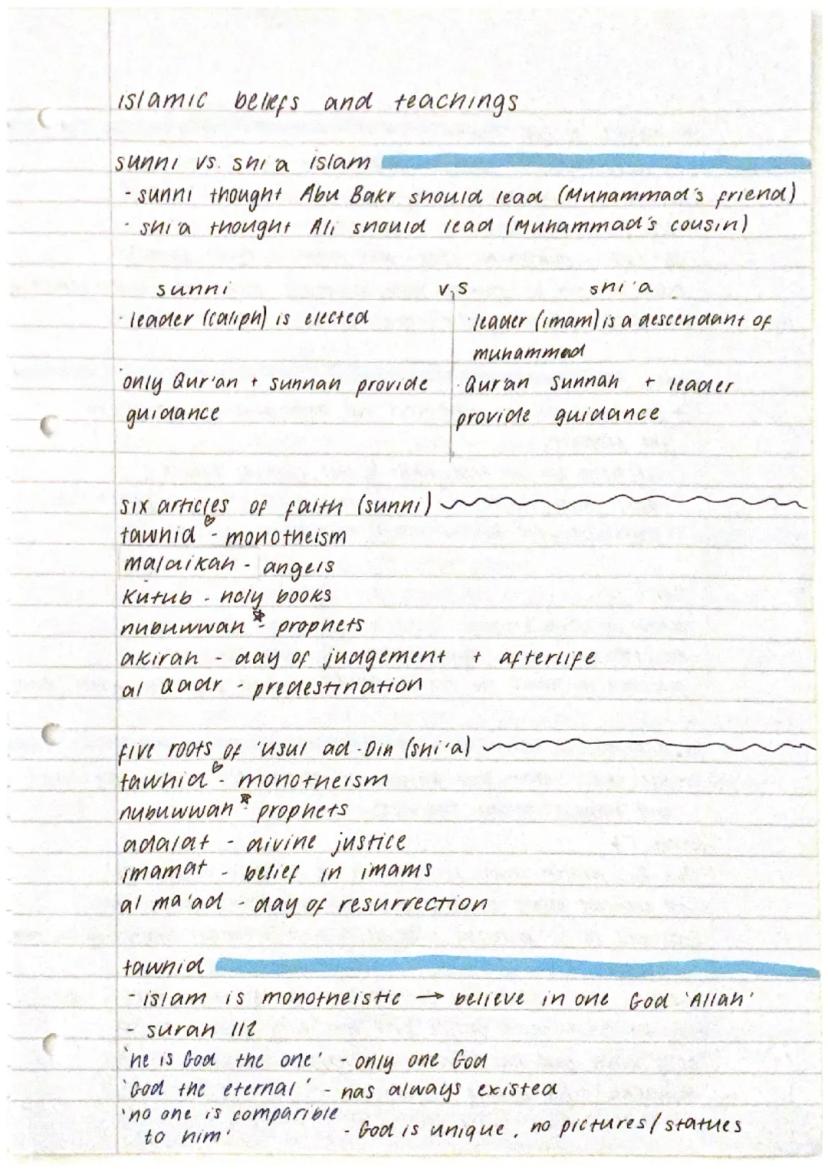 islamic beliefs and teachings
sunni vs. shi'a islam
- sunni thought Abu Bakr should lead (Muhammad's friend)
- shi'a thought Ali should lead (Muhammad's cousin)
sunni vs shi'a
· leader (caliph) is elected
· leader (imam) is a descendant of
muhammad
· only Qur'an + sunnah provide
guidance
· Qur'an sunnah + leader
provide guidance
six articles of faith (sunni)
tawhid - monotheism
malaikah - angels
kutub - holy books
nubuwwah - prophets
akirah - day of judgement + afterlife
al Qadr - predestination
five roots of 'usul ad-Din (shi'a)
tawhid - monotheism
nubuwwah prophets
adalat - divine justice
imamat - belief in imams
al ma'ad - day of resurrection
tawhid
- islam is monotheistic → believe in one God 'Allah'
- surah 112
'he is God the one' - only one God
'God the eternal' - has always existed
'no one is comparible
to him' - God is unique, no pictures/statues